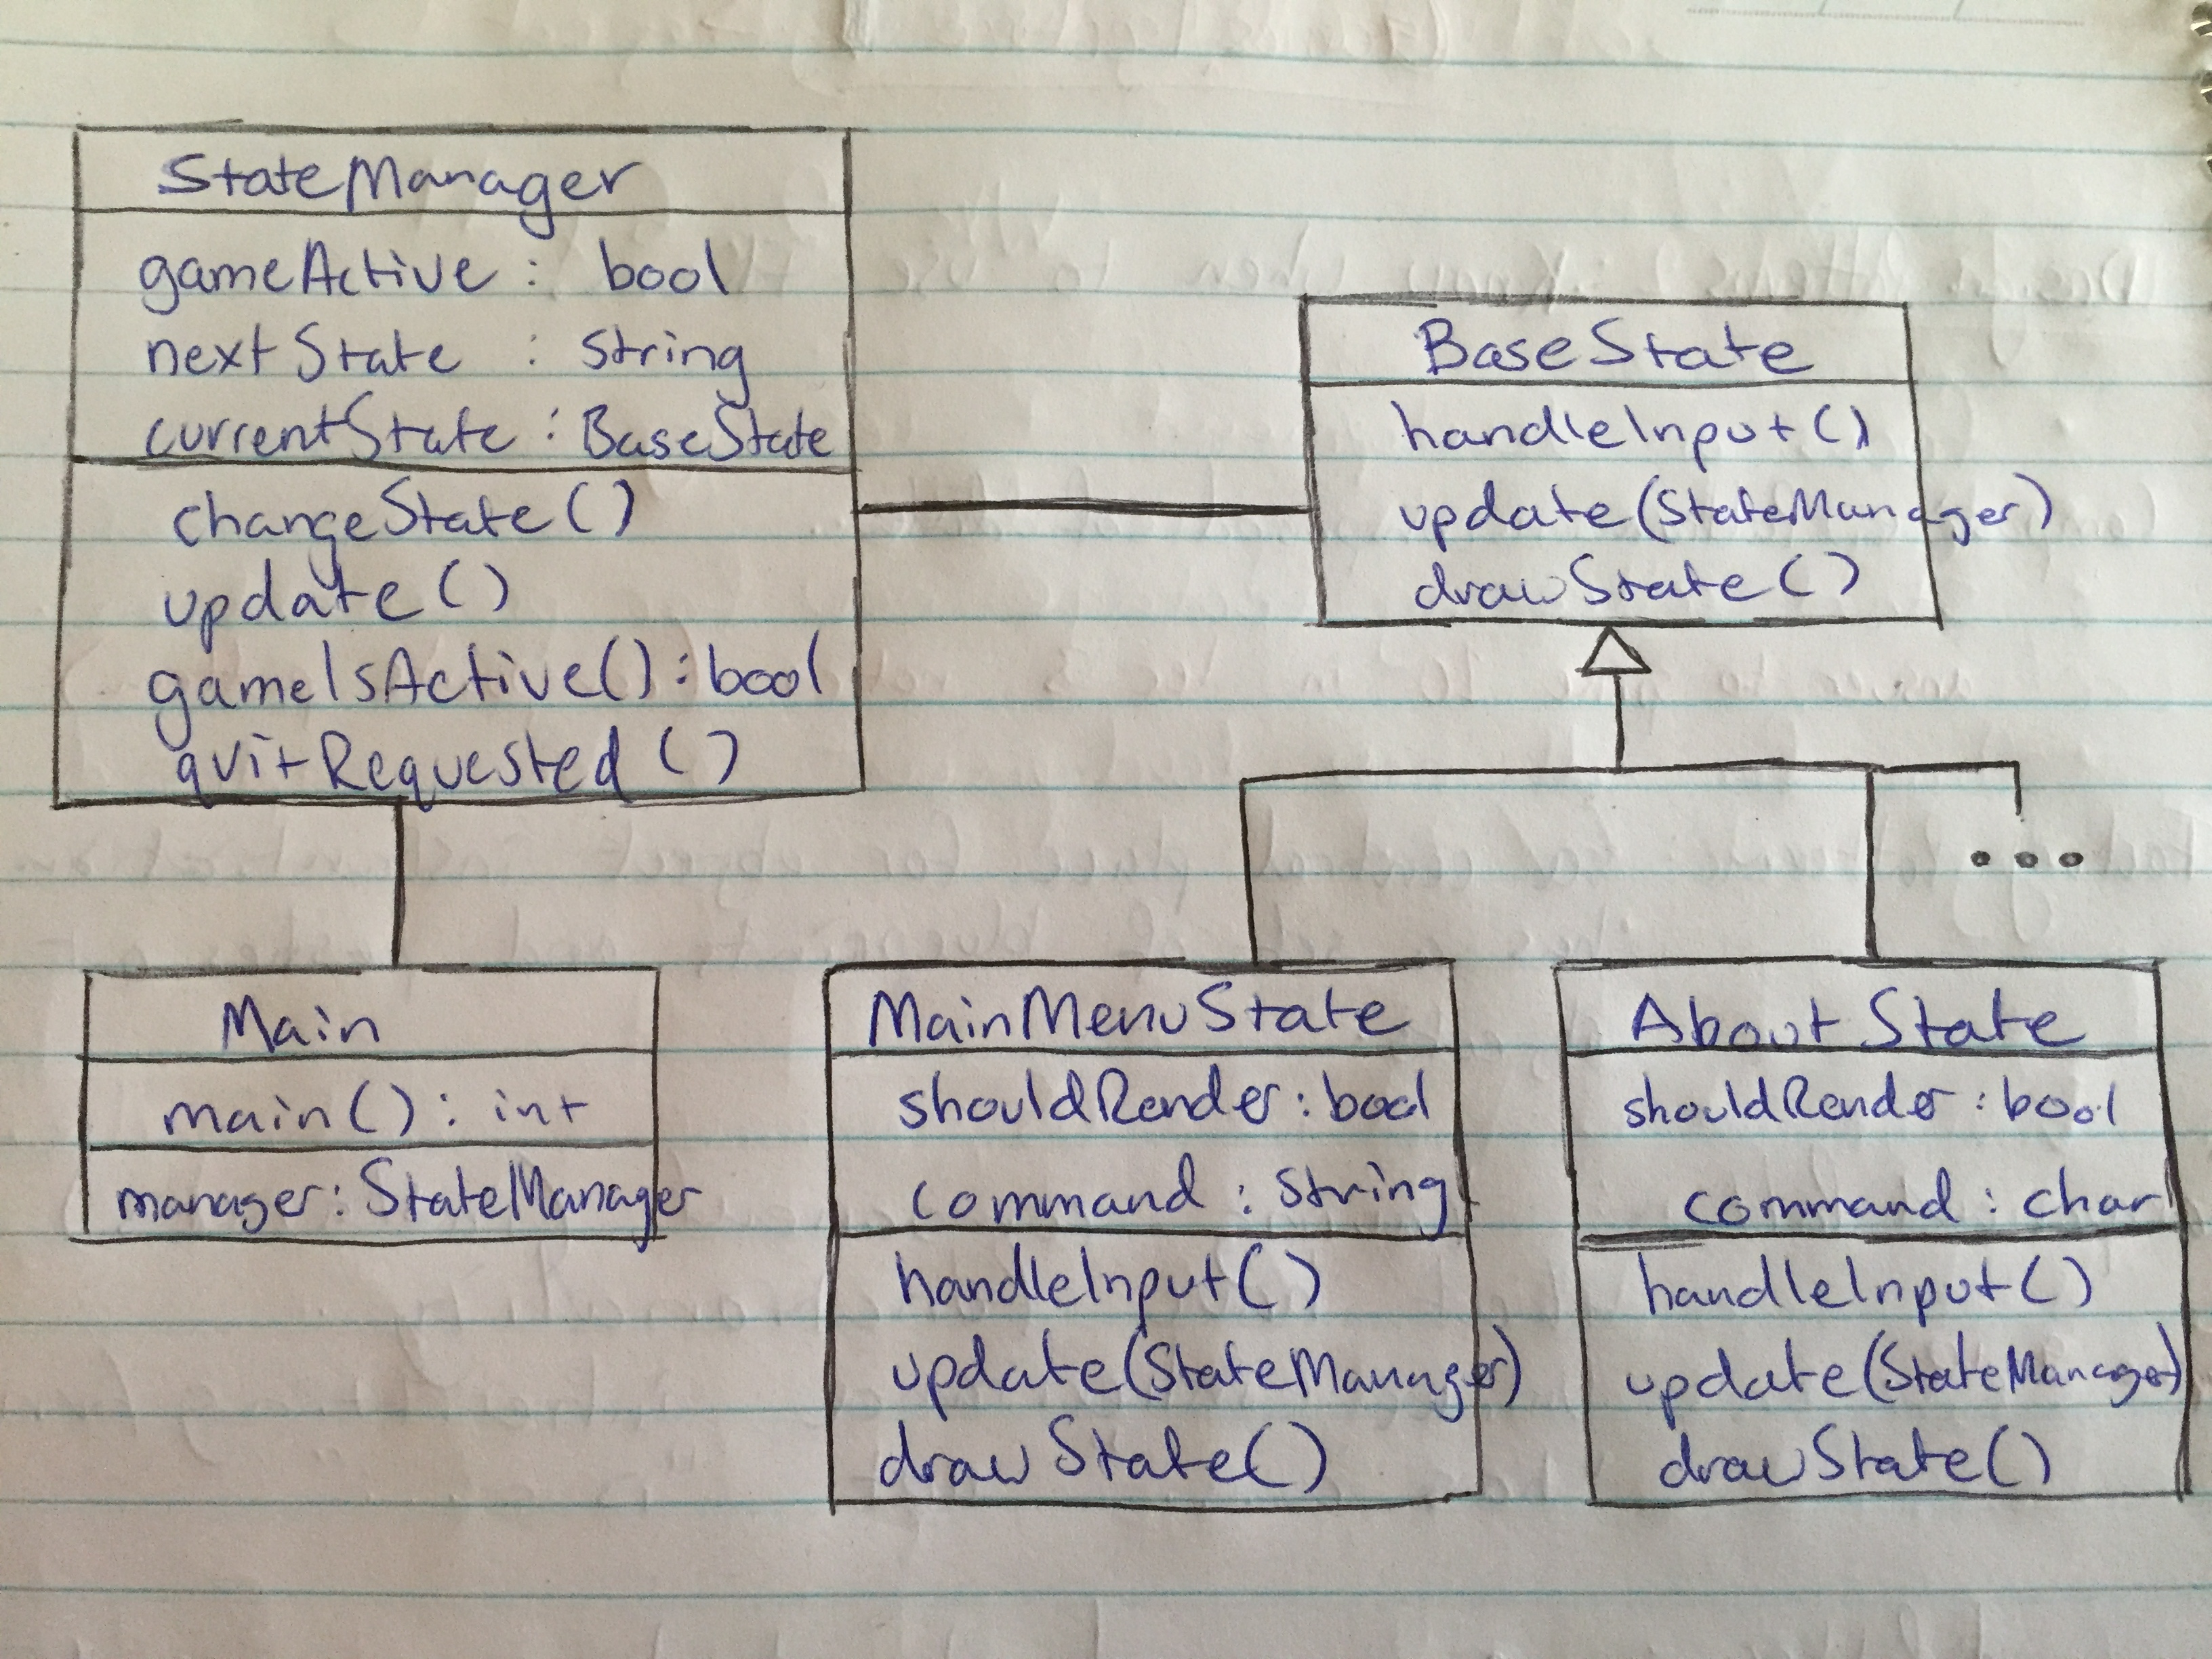 StateManager
gameActive : bool
nextState : string
currentState : BaseState
changeState()
update()
gameIsActive() : bool
quitRequested()
BaseState
handleInput()
update(StateManager)
drawState()
...
Main
main() : int
manager: StateManager
MainMenuState
shouldRender : bool
command : string
handleInput()
update(StateManager)
drawState()
AboutState
shouldRender : bool
command : char
handleInput()
update(StateManager)
drawState()